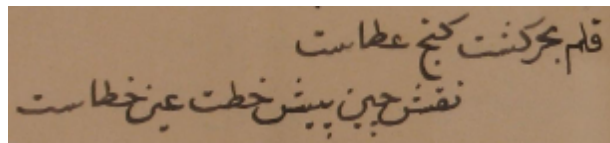 قلم بحر کفت کنج عطاست
نقش چین پیش خطت عین خطاست